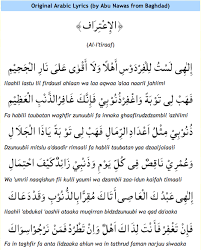 Original Arabic Lyrics (by Abu Nawas from Baghdad)
﴿ الإِعْتِرَاف ﴾
(Al-I'tiraaf)
إِلٰهِى لَسْتُ لِلْفِرْدَوْسِ أَهْلًا وَلَا أَقْوَى عَلَى نَارِ الْجَحِيْمِ
Ilaahii lastu lil firdausi ahlaan wa laa aqwaa 'alaa naaril jahiimi
فَهَبْ لِى تَوْبَةً وَاغْفِرْ ذُنُوْبِى فَإِنَّكَ غَافِرُ الذَّنْبِ الْعَظِيْمِ
Fa hablii taubatan waghfir zunuubii fa innaka ghaafirudzdzambil 'azhiimi
ذُنُوْبِى مِثْلُ أَعْدَادِ الرِّمَالِ فَهَبْ لِى تَوْبَةً يَاذَا الْجَلَالِ
Dzunuubii mitslu a'daadir rimaali fa hablii taubatan yaa dzaaljalaali
وَعُمْرِى نَاقِصٌ فِى كُلِّ يَوْمٍ وَذَنْبِى زَائِدٌ كَيْفَ احْتِمَالِى
Wa 'umrii naaqishun fii kulli yaumi wa dzambii zaa-idun kaifah timaali
إِلٰهِى عَبْدُكَ الْعَاصِى أَتَاكَ مُقِرًّا بِالذُّنُوْبِ وَقَدْ دَعَاكَ
Ilaahii 'abdukal 'aashii ataaka muqirran bidzdzunuubi wa qad da'aaka
فَإِنْ تَغْفِرْ فَأَنْتَ لِذَاكَ أَهْلٌ وَإِنْ تَطْرُدْ فَمَنْ نَرْجُو سِوَاكَ
Fa in taghfir fa anta lidzaaka ahlun wa in tathrud faman narjuu siwaaka